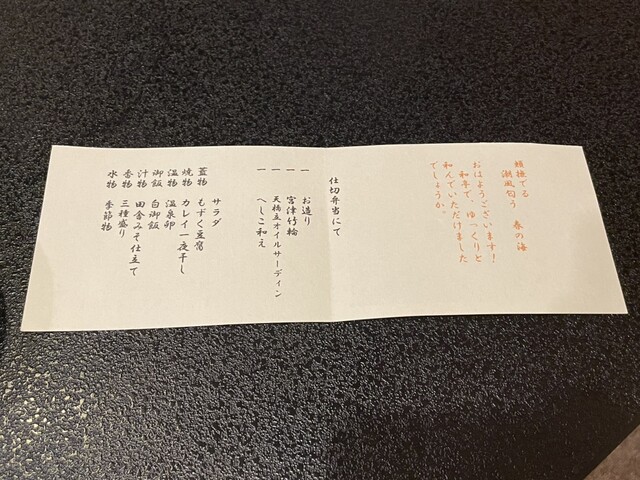 頬撫でる
潮風匂う　春の海
おはようございます！
和亭で、ゆっくりと
和んでいただけました
でしょうか。
仕切弁当にて
一　お造り
一　宮津竹輪
一　天橋立オイルサーディン
一　へしこ和え
サラダ
蓋物　もずく豆腐
焼物　カレイ一夜干し
温物　温泉卵
御飯　白御飯
汁物　田舎みそ仕立て
香物　三種盛り
水物　季節物